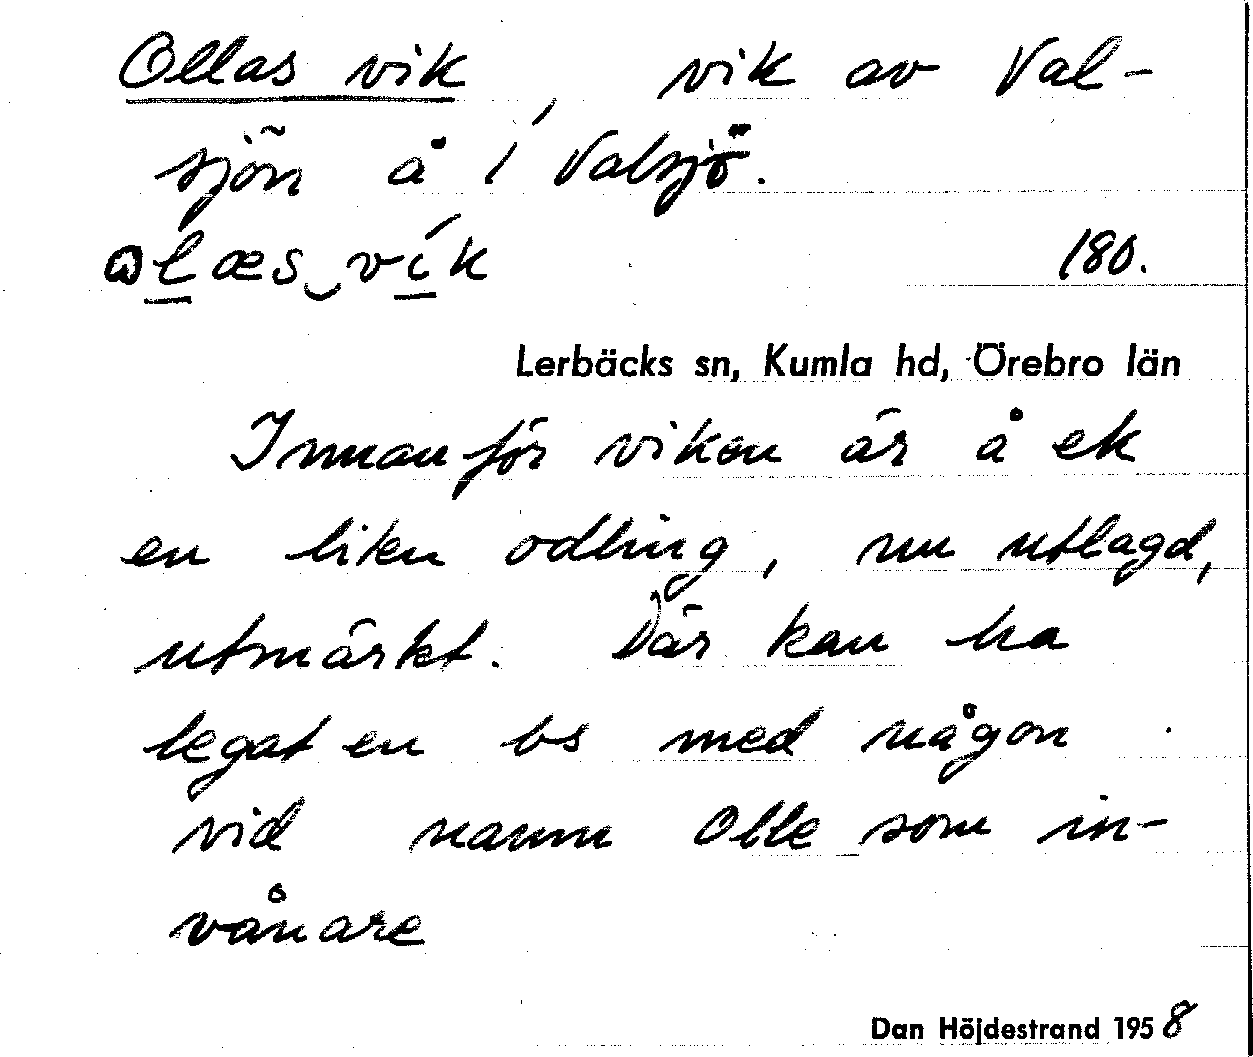 Ollas vik, vik av Val-
sjön å i Valsjö.
ɷlæs‿vík 180.
Lerbäcks sn, Kumla hd, Örebro län
Innanför viken är å ek
en liten odling, nu utlagd,
utmärkt. Där kan ha
legat en bs med någon
vid namn Olle som in-
vånare
Dan Höjdestrand 1958